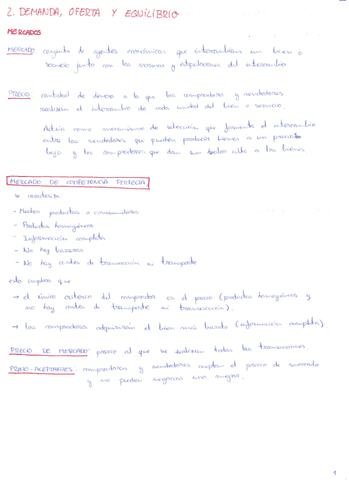 2. DEMANDA, OFERTA Y EQUILIBRIO
MERCADOS
MERCADO conjunto de agentes económicos que intercambian un bien o
servicio junto con las normas y estipulaciones del intercambio
PRECIO cantidad de dinero a la que los compradores y vendedores
realizan el intercambio de cada unidad del bien o servicio.
Actúa como mecanismo de selección que fomenta el intercambio
entre los vendedores que pueden producir bienes a un precio
bajo y los compradores que dan un valor alto a los bienes
MERCADO DE COMPETENCIA PERFECTA
se caracteriza
- Muchos productores o consumidores
- Productos homogéneos
- Información completa
- No hay barreras
- No hay costes de transacción ni transporte
esto implica que
→ el único criterio del comprador es el precio (productos homogéneos y
no hay costes de transporte ni transacción).
→ los compradores adquirirán el bien más barato (información completa)
PRECIO DE MERCADO precio al que se realizan todas las transacciones
PRECIO-ACEPTANTES compradores y vendedores aceptan el precio de mercado
y no pueden negociar uno mejor.
1